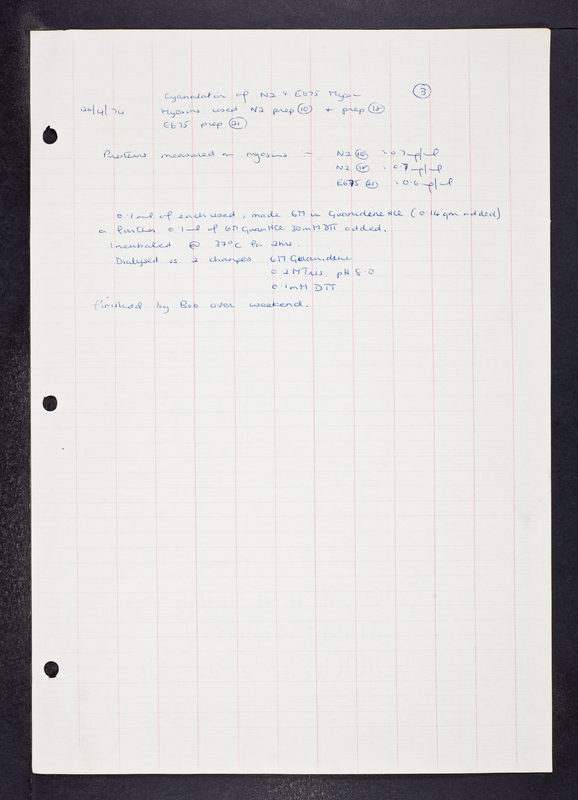 Cyanalation of N2 + E675 Myosin ③
26/4/74 Myosins used N2 prep ⑩ + prep ⑱
E675 prep ㉑
Proteins measured on myosins :-
N2 ⑩ = 0.7mg/ml
N2 ⑱ = 0.7mg/ml
E675 ㉑ = 0.6mg/ml
0.1ml of each used, made 6M in Guanidene HCl (0.14gm added)
a further 0.1ml of 6M Guan HCl 30mM DTT added.
Incubated @ 37°C for 2hrs.
Dialysed vs 2 changes 6M Guanidene
0.2M Tris pH 8.0
0.1mM DTT
Finished by Bob over weekend.